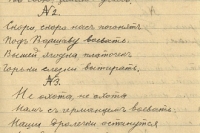 №2.
Скоро, скоро насъ погонятъ
Подъ Варшаву воевать.
Вешей ягодка, платочекъ
Горьки слезки вытирать.
№3.
Не охота, не охота
Намъ съ германцемъ воевать.
Наши дролечки останутся